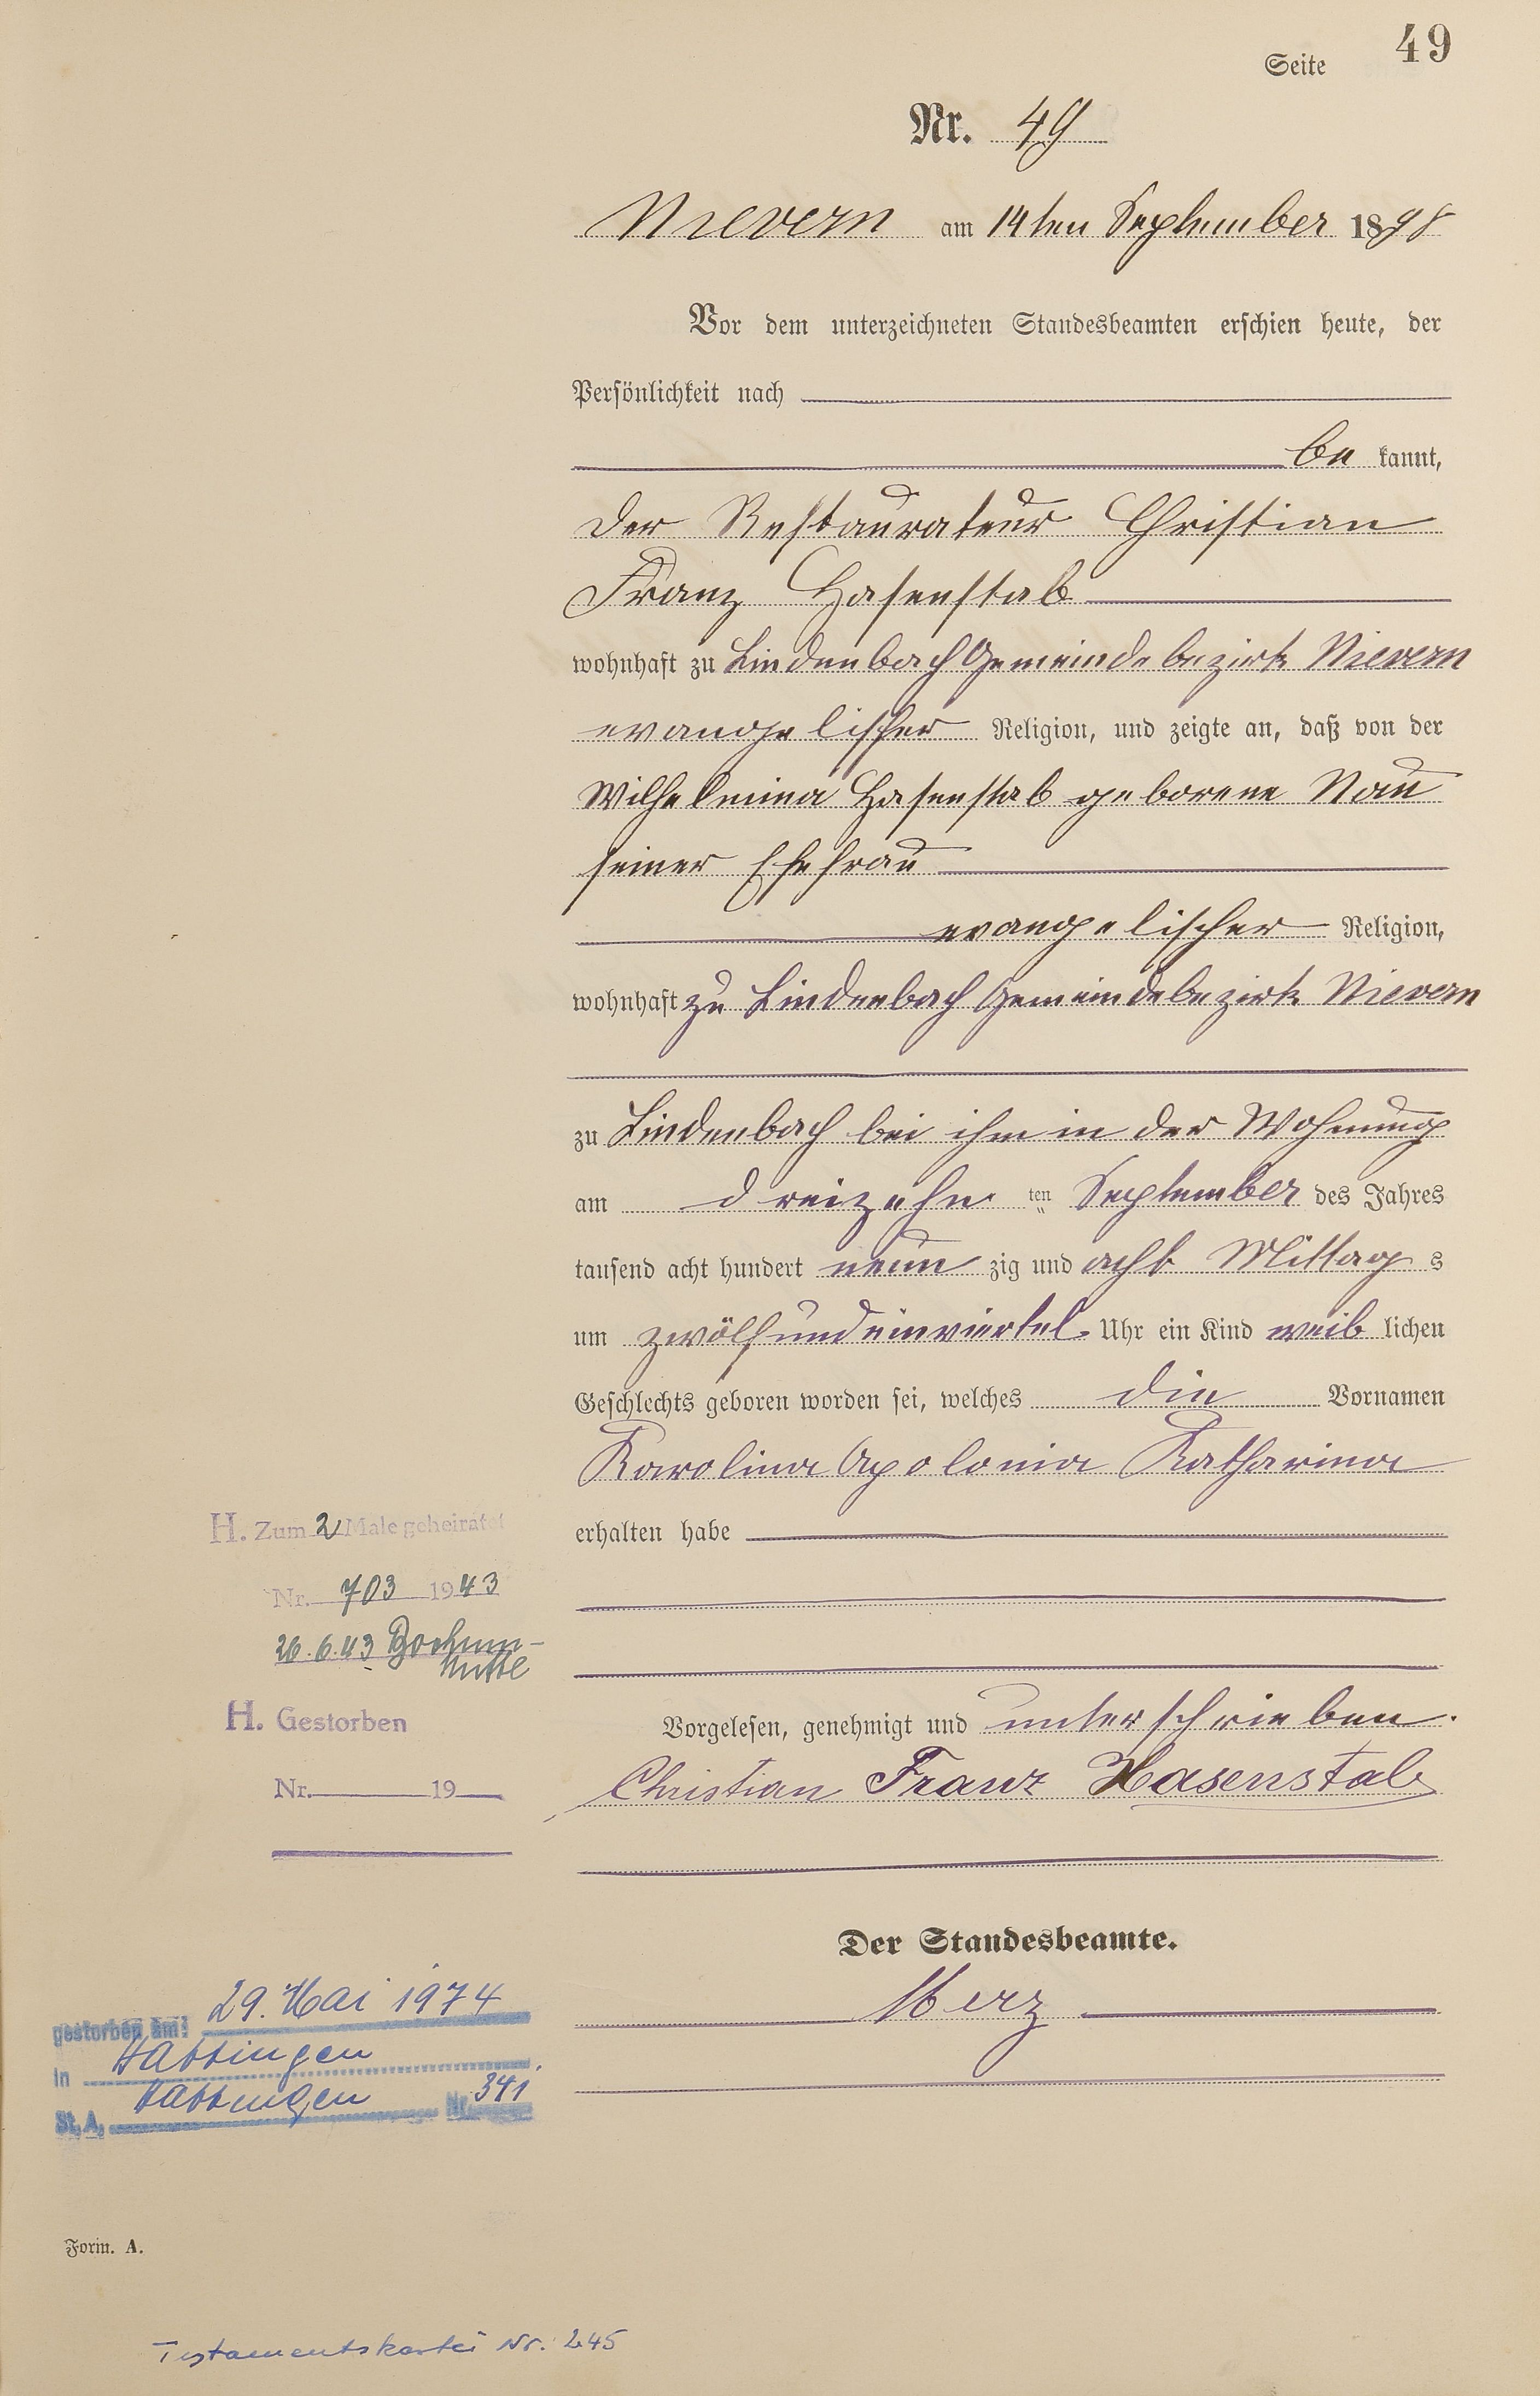 Seite 49
Nr. 49
Nievern am 14ten September 1898
Vor dem unterzeichneten Standesbeamten erschien heute, der
Persönlichkeit nach
be kannt,
der Restaurateur Christian
Franz Hasenstab
wohnhaft zu Lindenbach Gemeindebezirk Nievern
evangelischer Religion, und zeigte an, daß von der
Wilhelmina Hasenstab geborene Nau
seiner Ehefrau
evangelischer Religion,
wohnhaft zu Lindenbach Gemeindebezirk Nievern
zu Lindenbach bei ihm in der Wohnung
am dreizehn ten September des Jahres
tausend acht hundert neun zig und acht Mittag s
um zwölfundeinviertel Uhr ein Kind weib lichen
Geschlechts geboren worden sei, welches die Vornamen
Karolina Apolonia Katharina
erhalten habe
H. Zum 2 Male geheiratet
Nr. 703 1943
26.6.43 Bochum-
Mitte
H. Gestorben
Nr. 19
Vorgelesen, genehmigt und unterschrieben.
Christian Franz Hasenstab
Der Standesbeamte.
Merz
gestorben am: 29. Mai 1974
in Hattingen
St. A. Hattingen Nr. 341
Form. A.
Testamentskartei Nr. 245